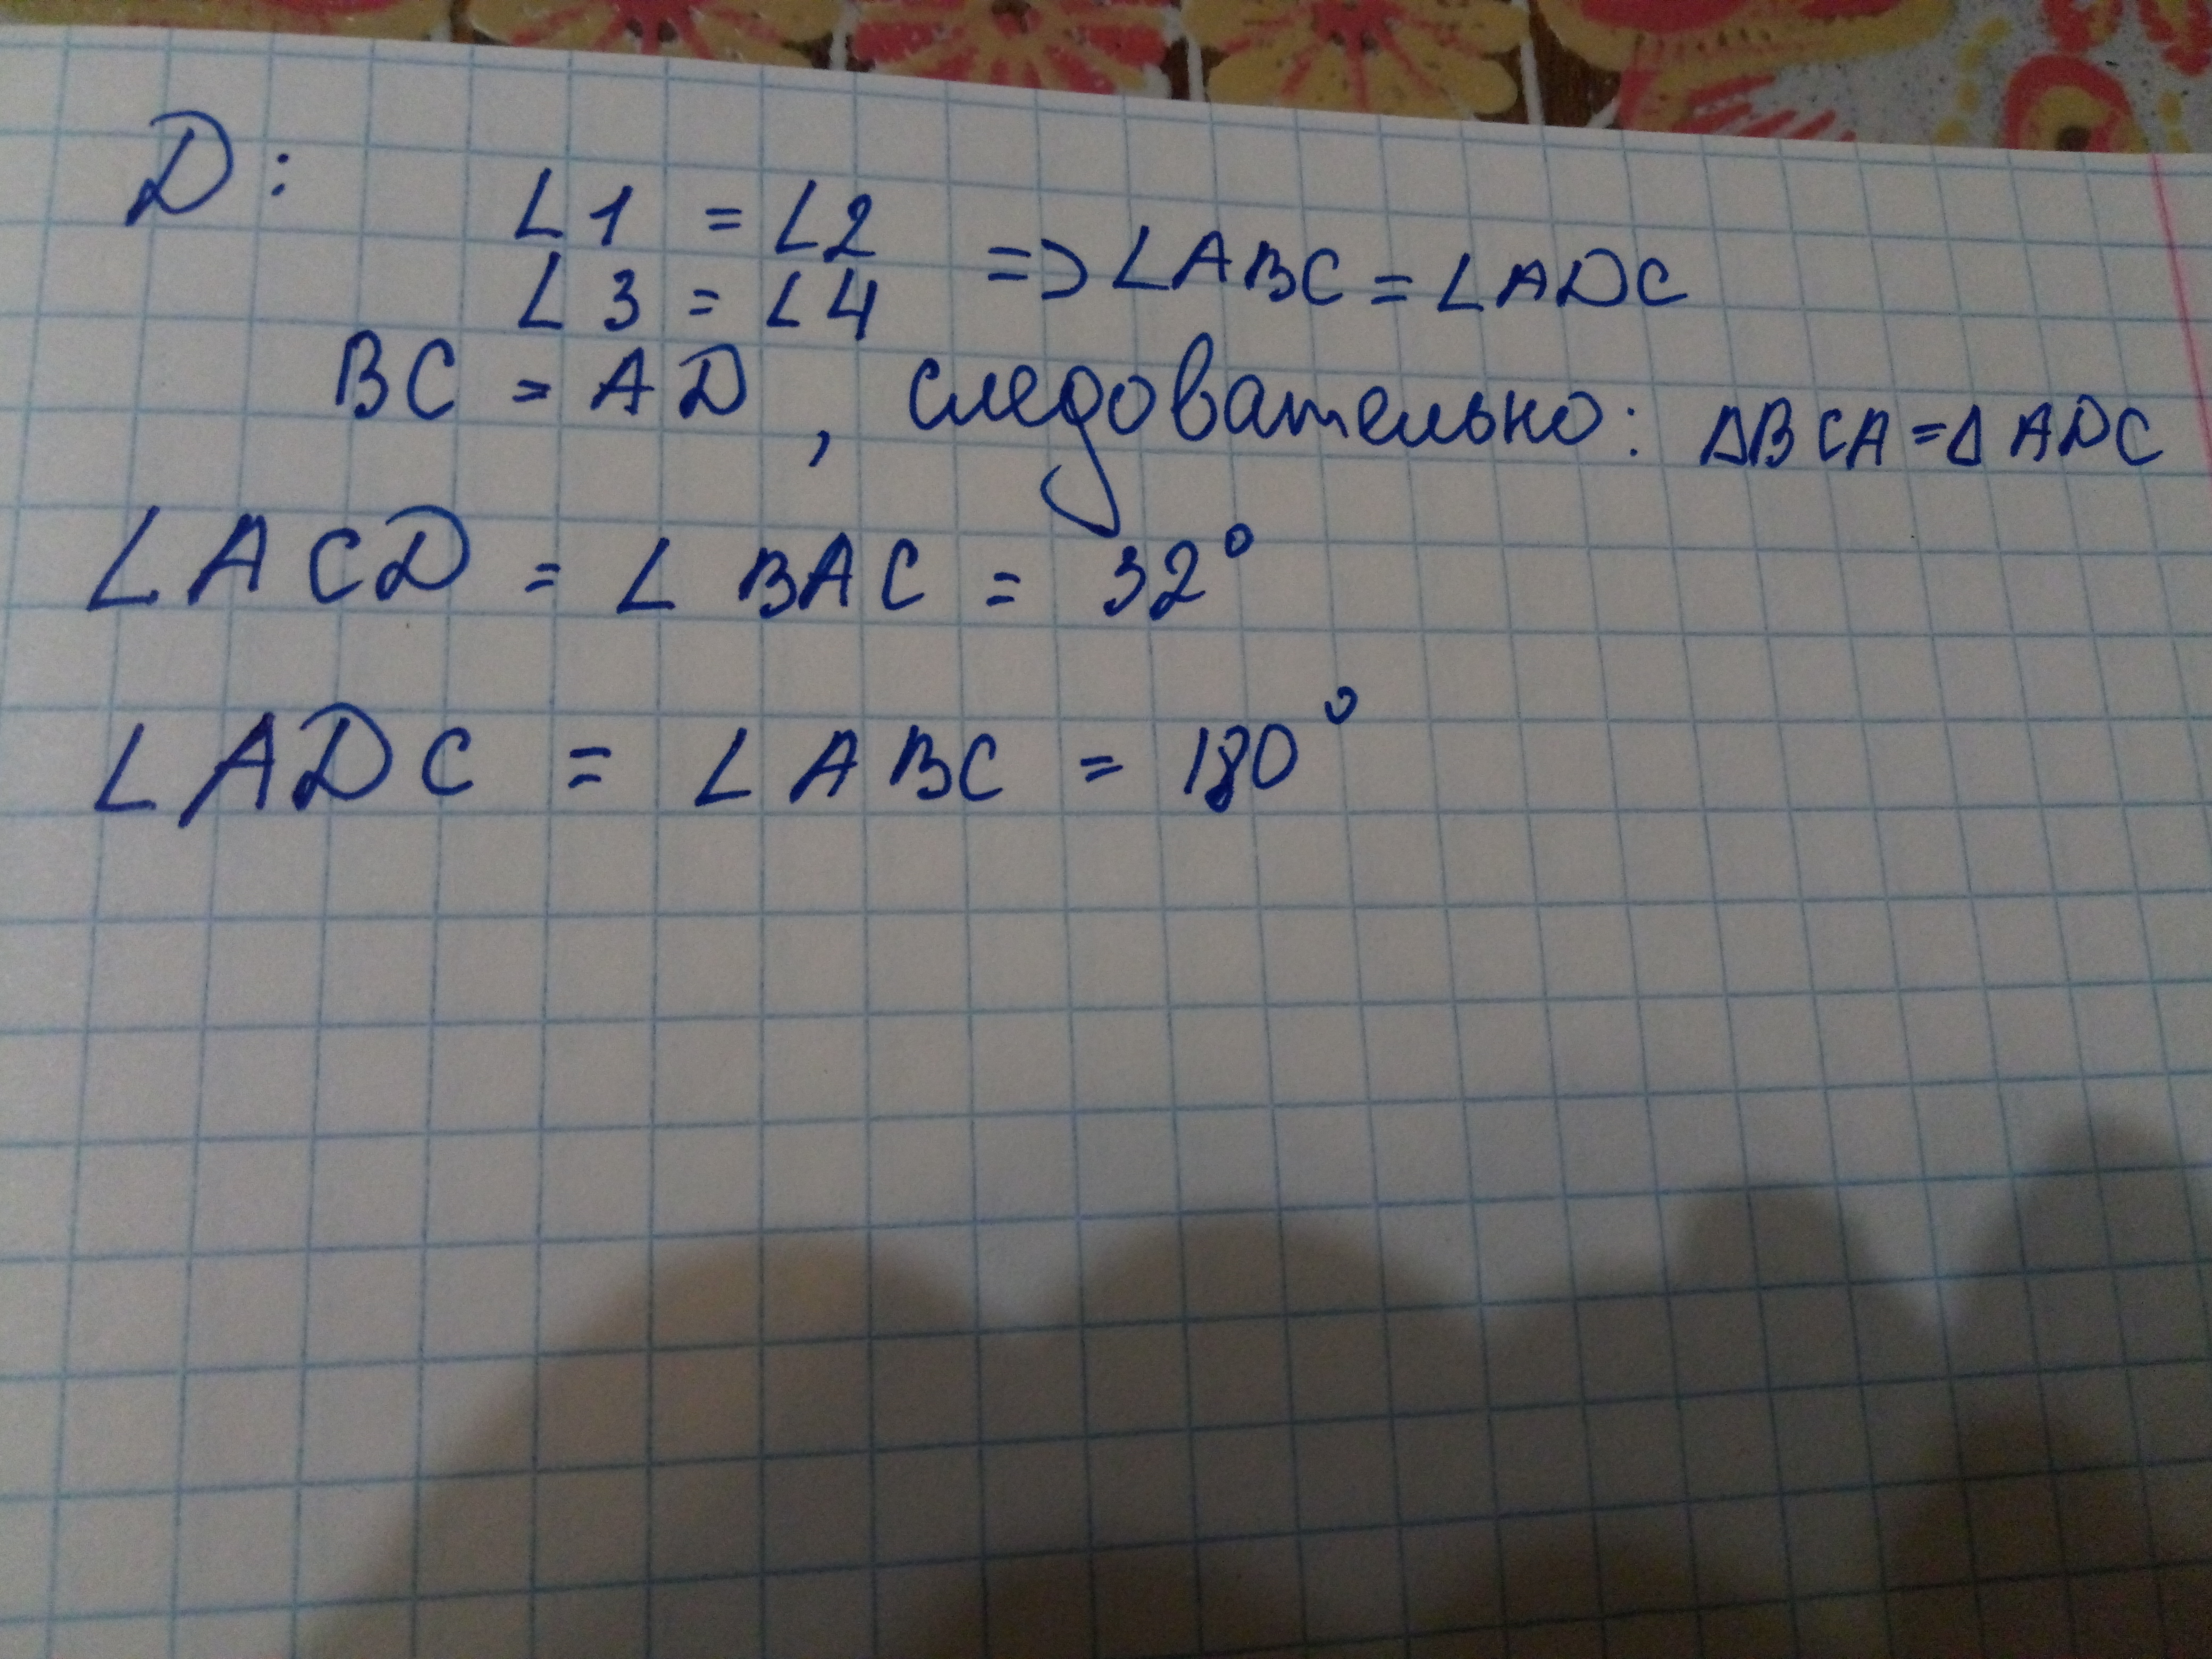 D:
∠1 = ∠2
∠3 = ∠4 => ∠ABC = ∠ADC
BC = AD, следовательно: ΔBCA = Δ ADC
∠ACD = ∠ BAC = 32°
∠ADC = ∠ABC = 180°